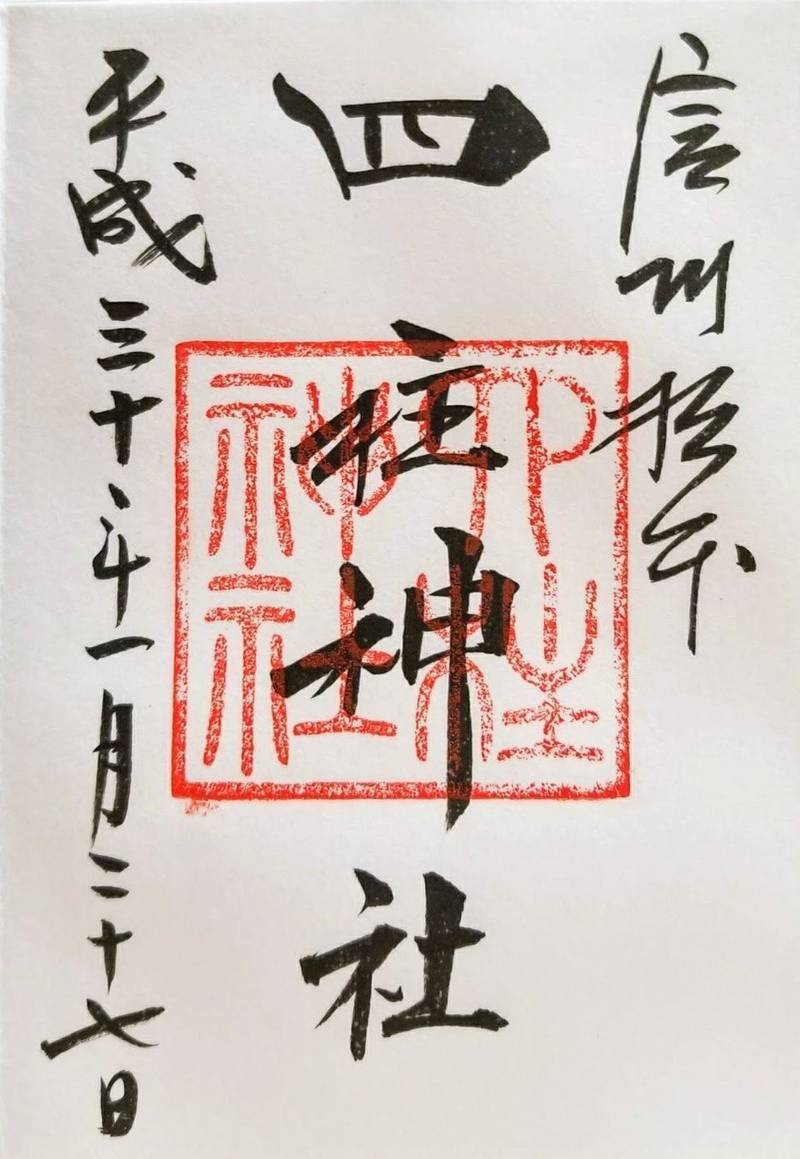 信州松本
四柱神社
平成三十年一月二十七日
四柱
神社